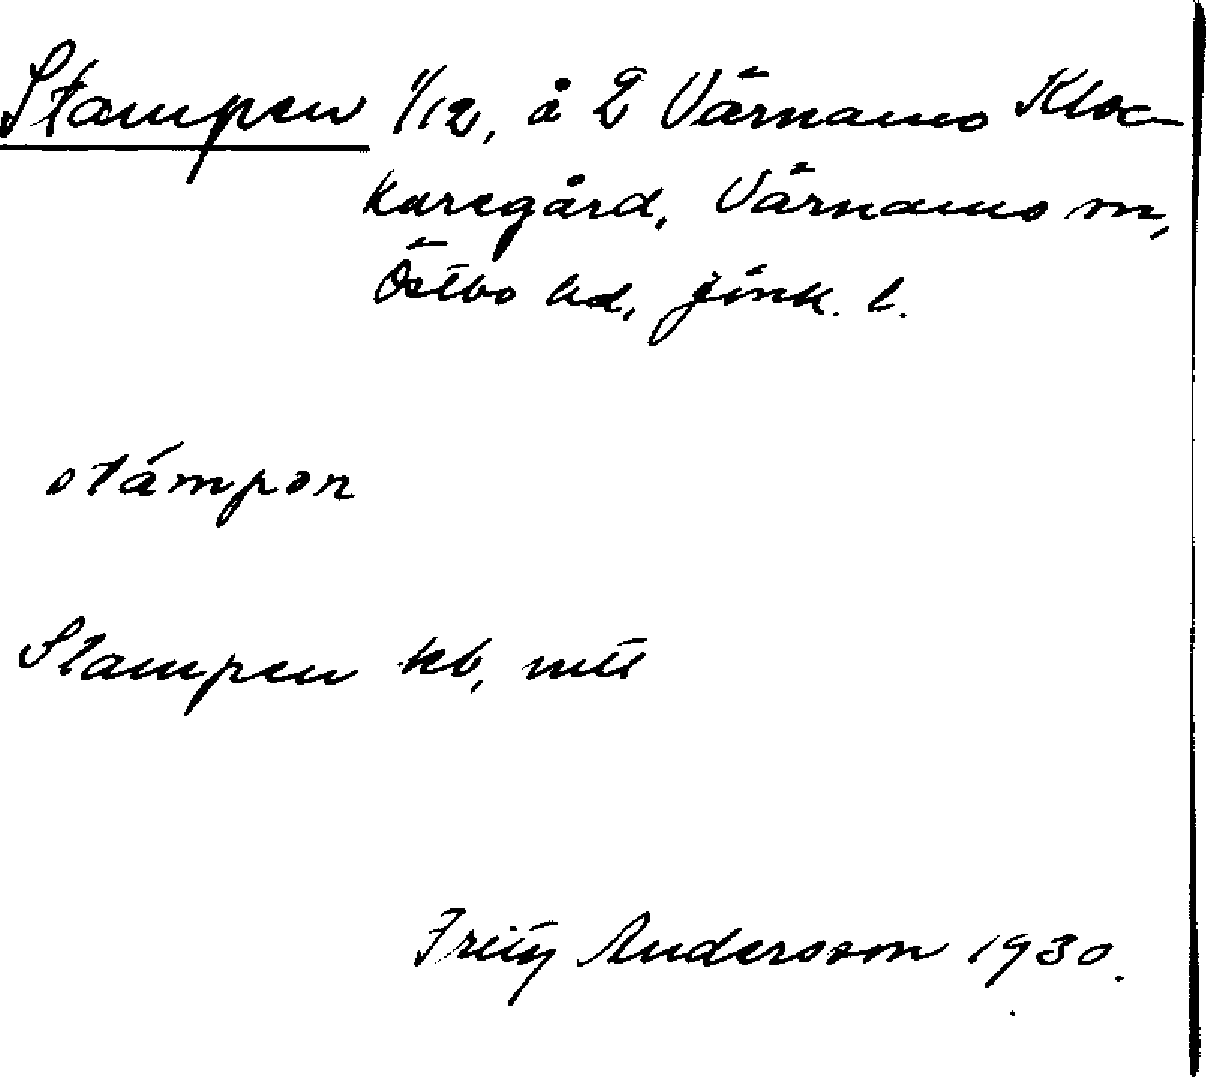 Stampen 1/12, å 2 Värnamo Kloc-
karegård, Värnamo sn,
Östbo hd, Jönk. l.
stámpon
Stampen kb, mtl
Fritz Andersson 1930.